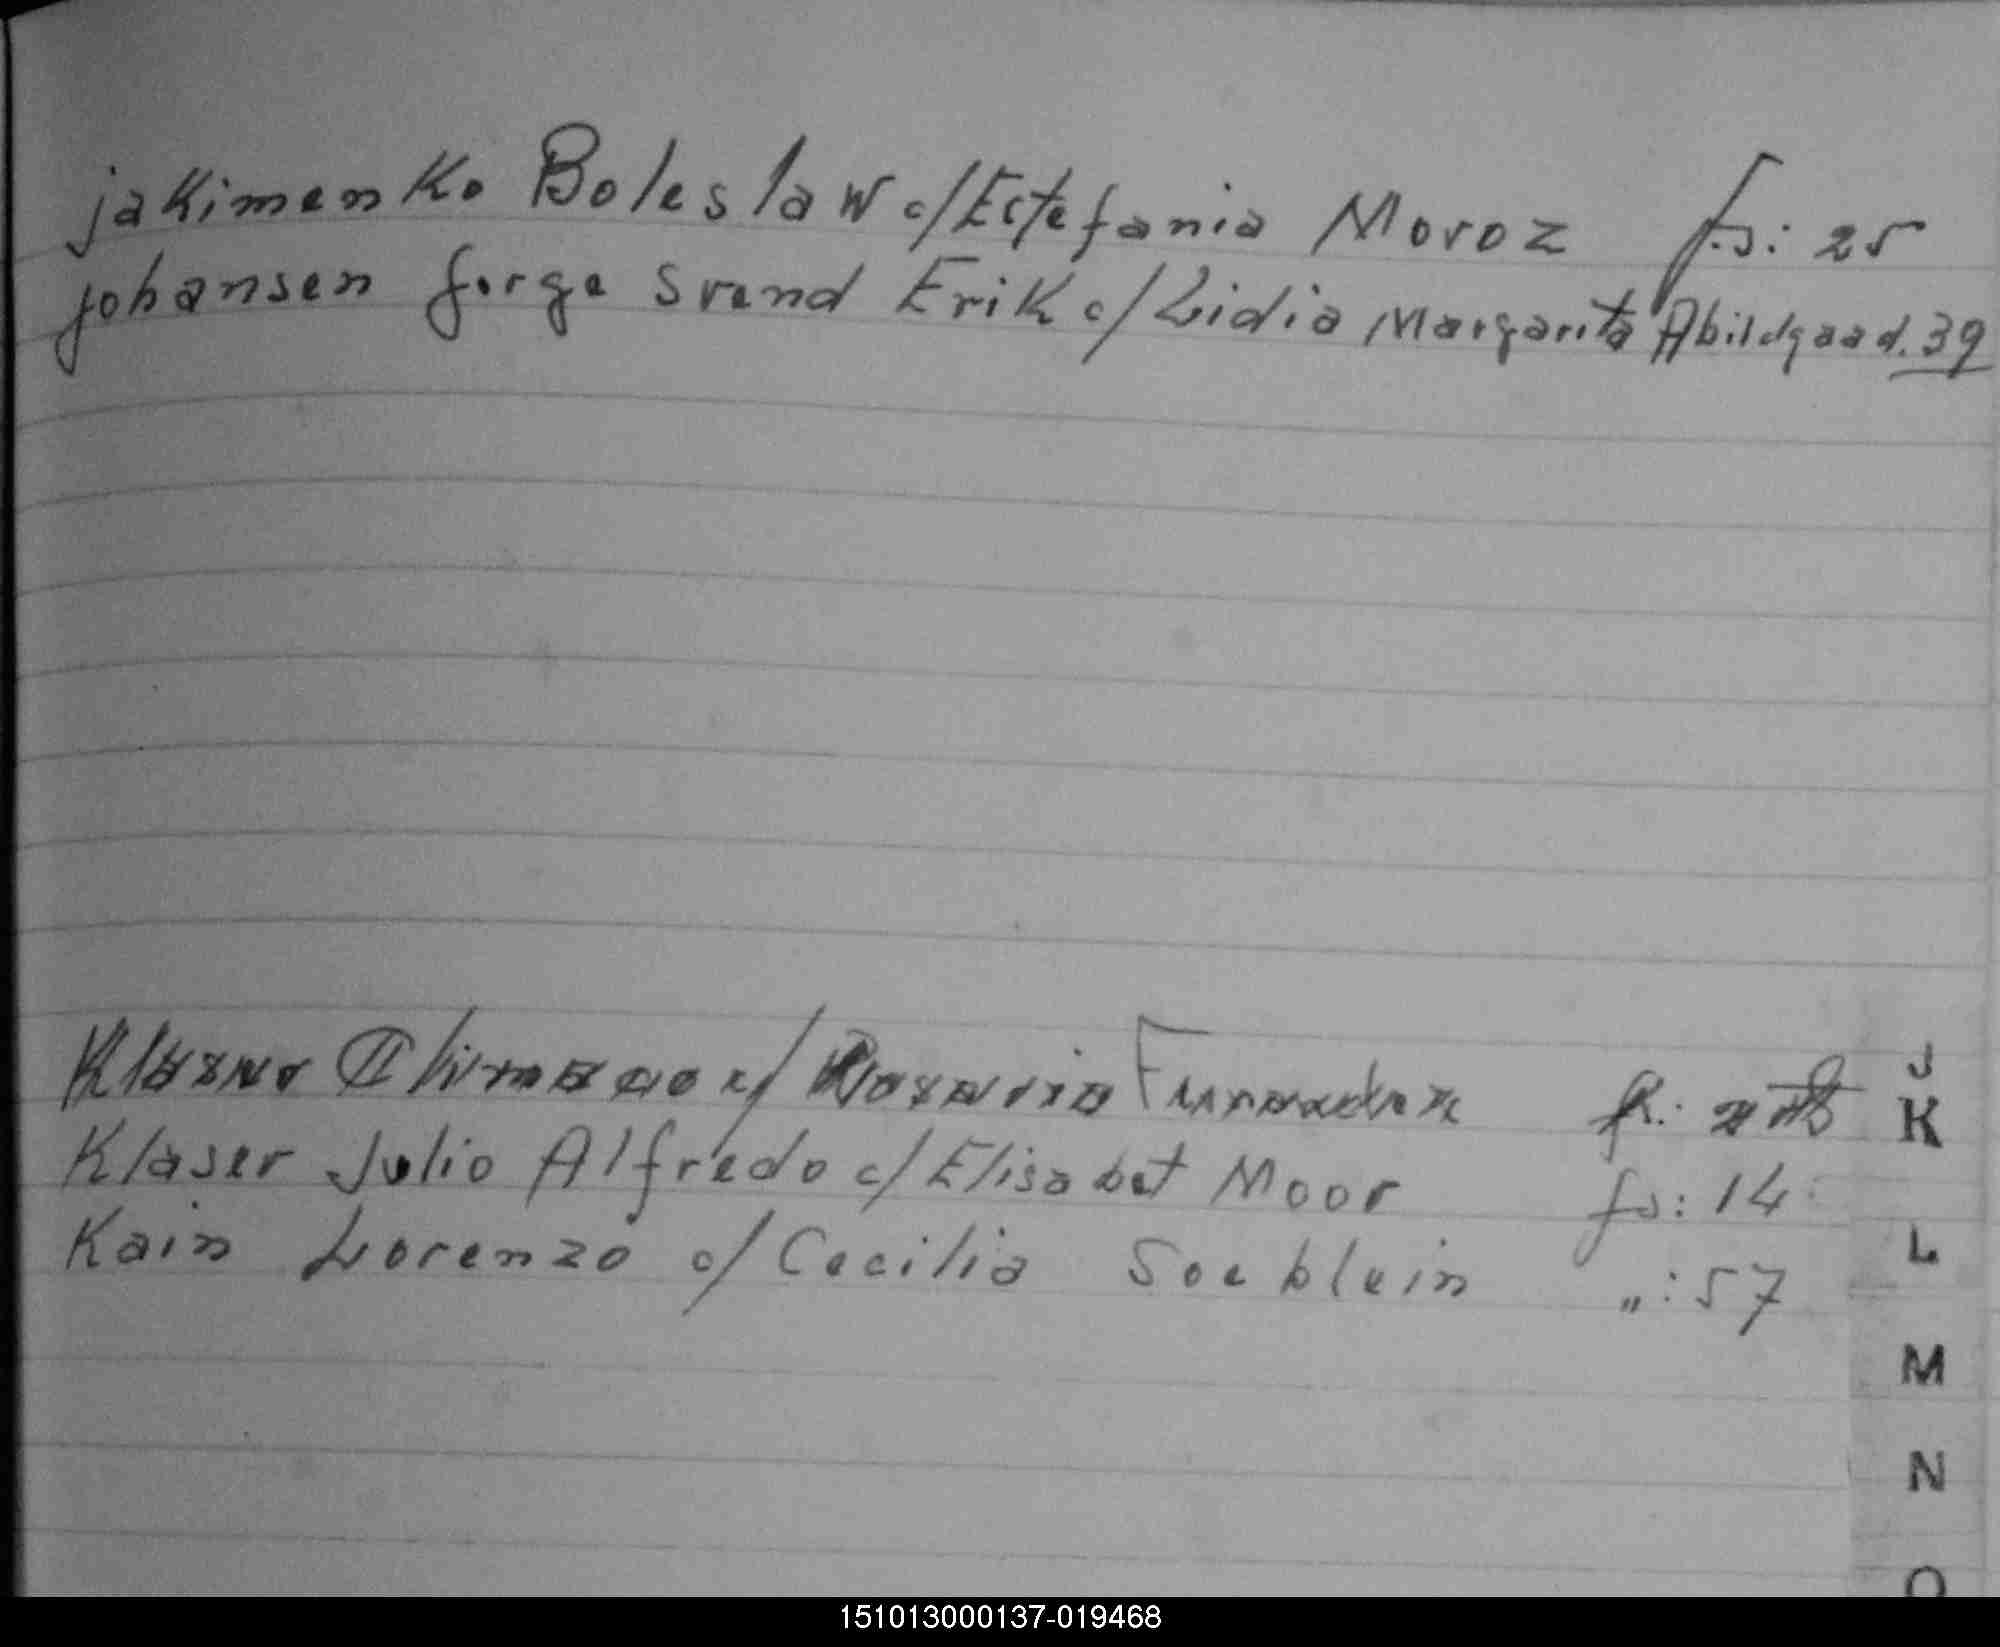 jakimenko Boleslaw c/Estefania Moroz fs: 25
johansen jorge Svend Erik c/Lidia Margarita Abildgaad. 39
c/
Klaser Julio Alfredo c/Elisabet Moor fs: 14
Kain Lorenzo c/Cecilia Soeblein „: 57
J
K
L
M
N
O
151013000137-019468